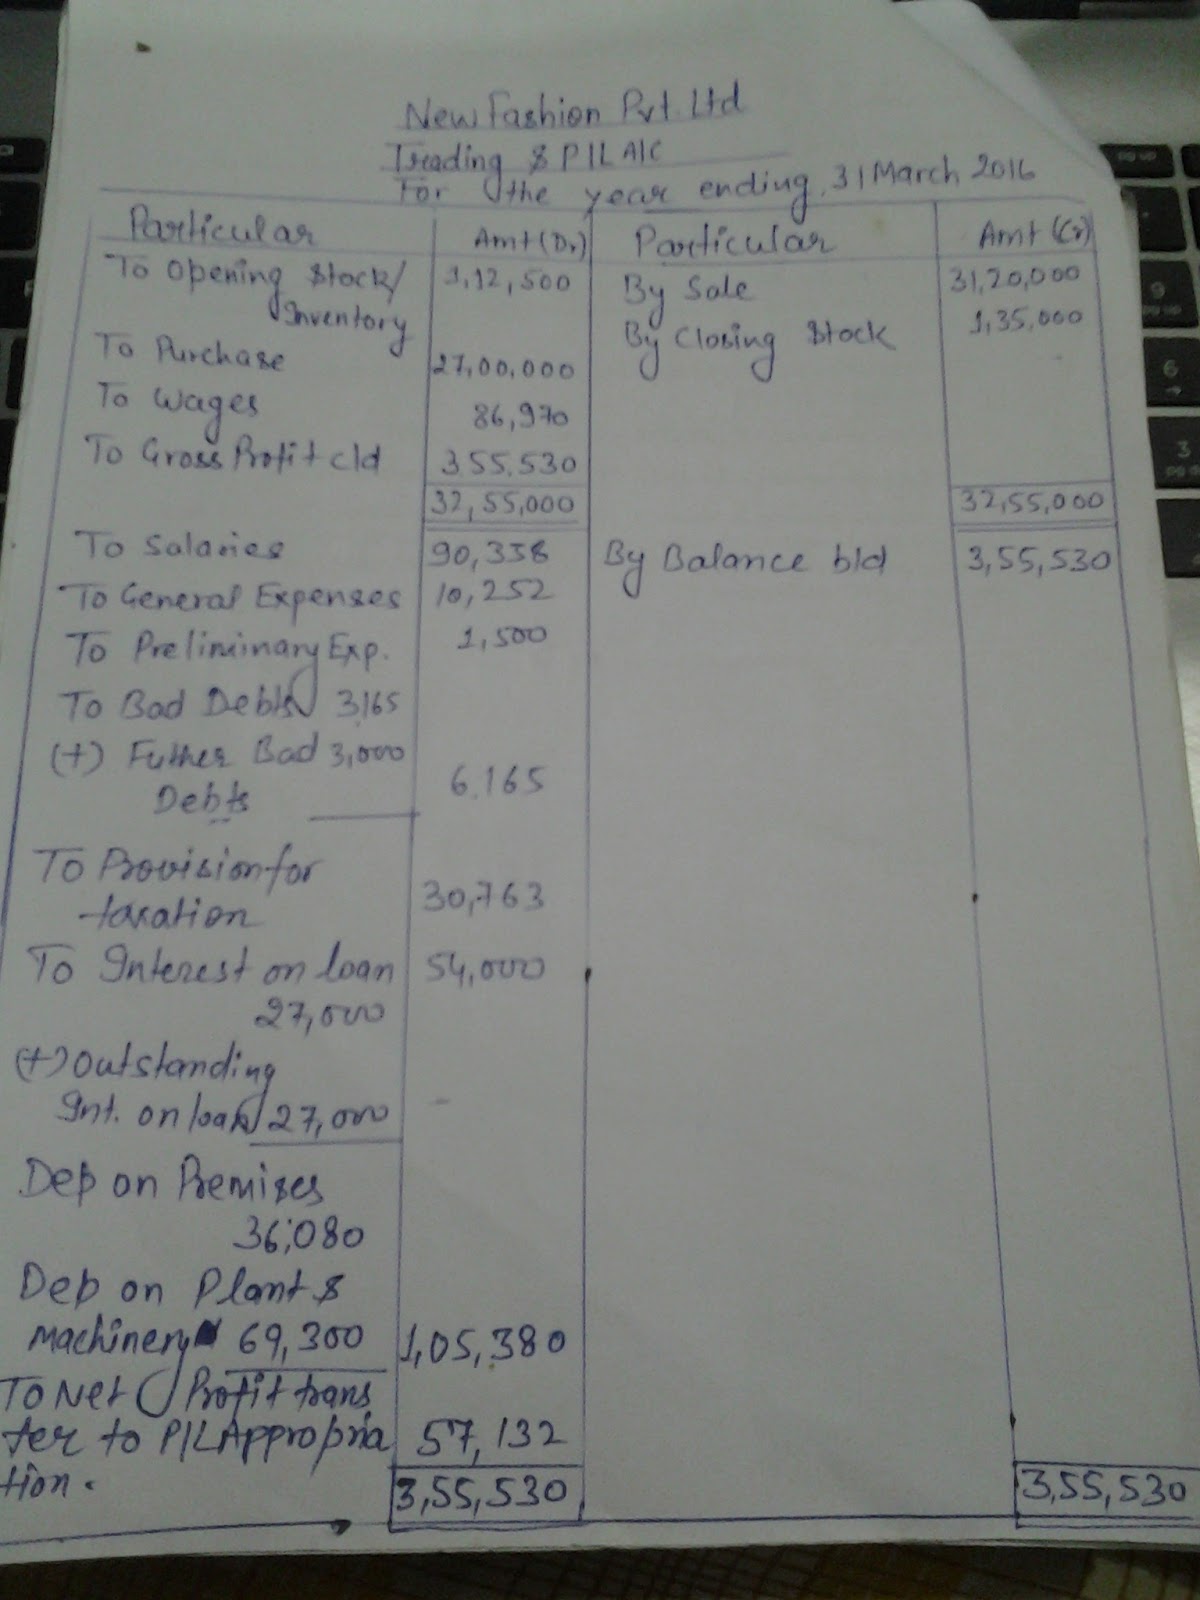 New Fashion Pvt. Ltd
Trading & P/L A/C
For the year ending 31 March 2016
Particular Amt (Dr) Particular Amt (Cr)
To Opening Stock/ 1,12,500 By Sale 31,20,000
Inventory By Closing Stock 1,35,000
To Purchase 27,00,000
To Wages 86,970
To Gross Profit c/d 355,530
32,55,000 32,55,000
To Salaries 90,338 By Balance b/d 3,55,530
To General Expenses 10,252
To Preliminary Exp. 1,500
To Bad Debts 3,165
(+) Futher Bad 3,000
Debts 6,165
To Provision for
taxation 30,763
To Interest on loan 54,000
27,000
(+) Outstanding
Int. on loan 27,000
Dep on Premises
36,080
Dep on Plant &
Machinery 69,300 1,05,380
To Net Profit trans
fer to P/L Appropria 57,132
tion. 3,55,530 3,55,530